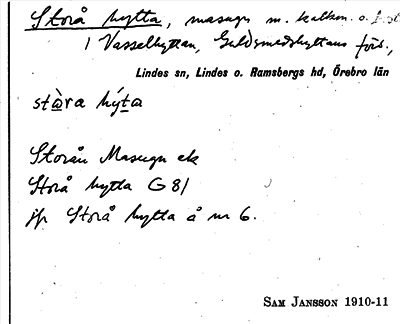 Storå hytta, masugn m. kalkon. o.
i Vasselhyttan, Guldsmedshyttans förs.,
Lindes sn, Lindes o. Ramsbergs hd, Örebro län
stòra hýta
Storån Masugn ek
Storå hytta G 81
jfr Storå hytta å nr 6.
SAM JANSSON 1910-11